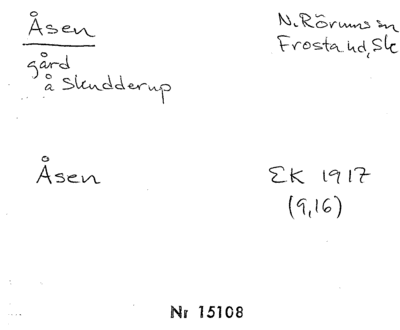 Åsen
N. Rörums sn
Frosta hd, Sk
gård
å Skudderup
Åsen
EK 1917
(9,16)
Nr 15108